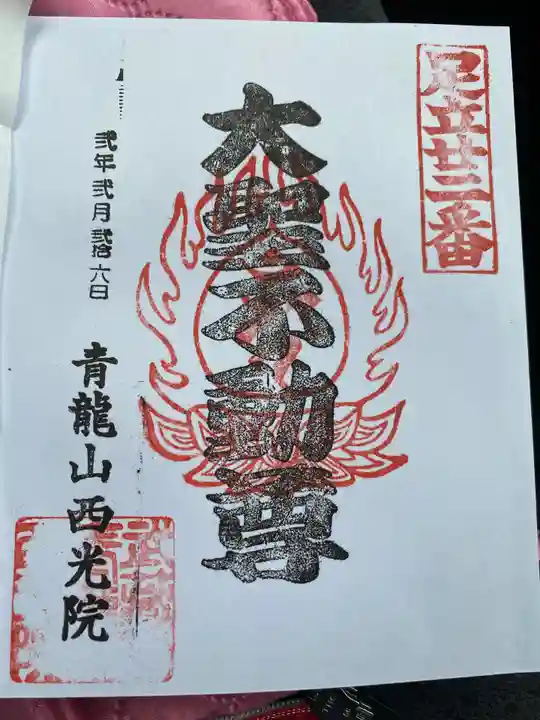 足立廿三番
大聖不動尊
弐年弐月弐拾六日
青龍山西光院